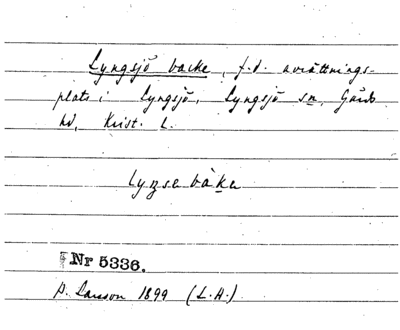 Lyngsjö backe, f.d. avrättnings-
plats i Lyngsjö, Lyngsjö sn, Gärds
hd, Krist. L.
lyŋsə bàkə
Nr 5336.
P. Larsson 1899 (L.A.)